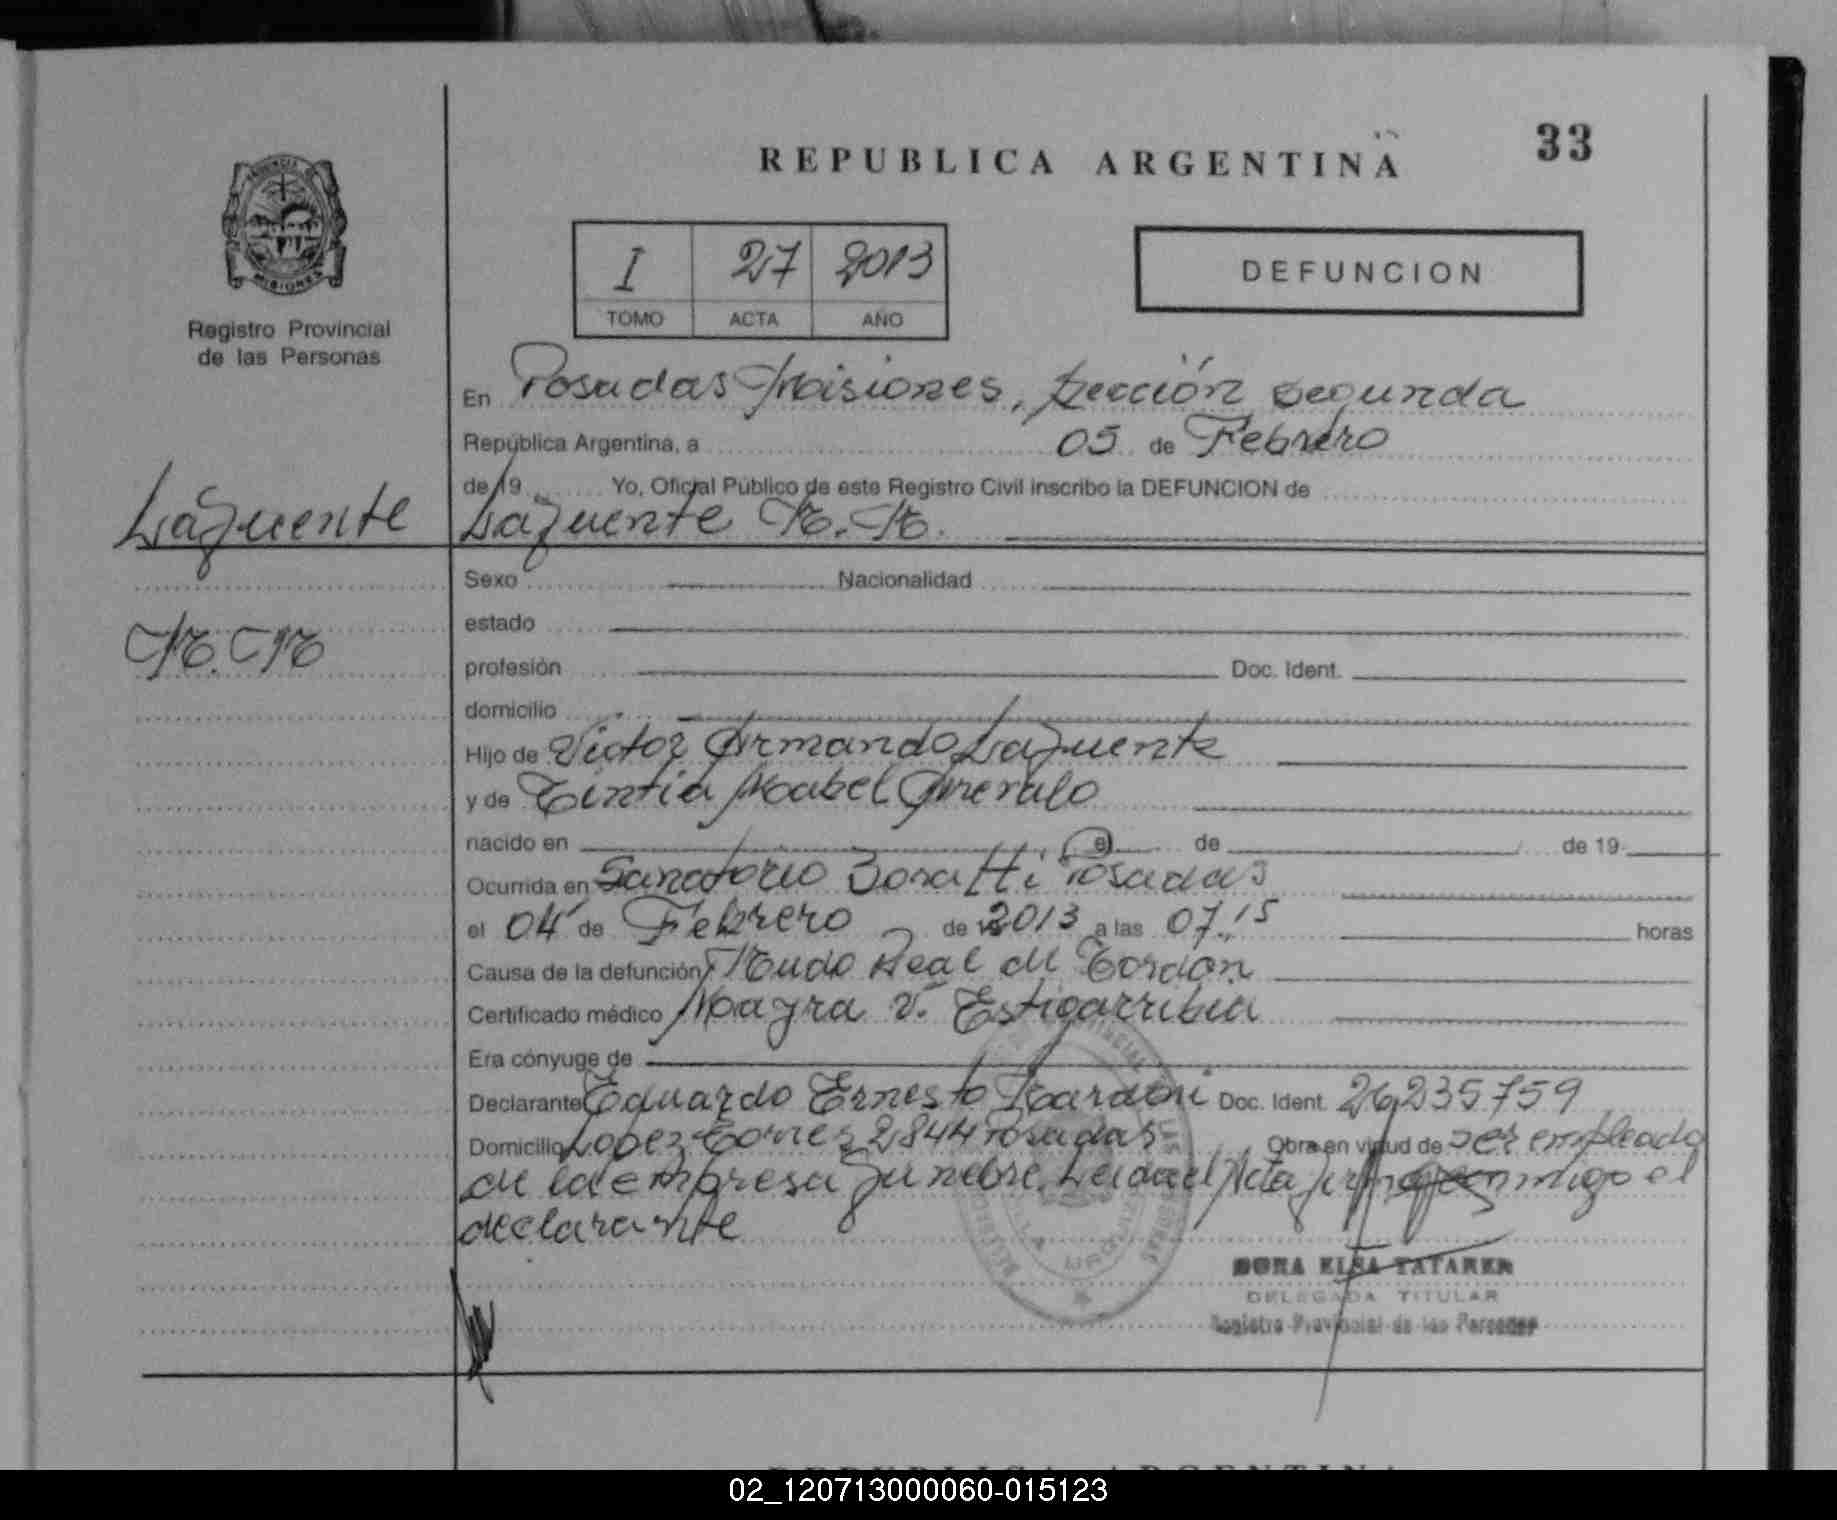 REPUBLICA ARGENTINA
33
PROVINCIA
MISIONES
Registro Provincial
de las Personas
I 27 2013
TOMO ACTA AÑO
DEFUNCION
En Posadas Misiones, Sección Segunda
República Argentina, a 05 de Febrero
de 19 Yo, Oficial Público de este Registro Civil inscribo la DEFUNCION de
Lafuente
Lafuente N.N.
Sexo Nacionalidad
estado
N.N
profesión Doc. Ident.
domicilio
Hijo de Victor Armando Lafuente
y de Cintia Mabel
nacido en el de de 19
Ocurrida en Sanatorio Boratti Posadas
el 04 de Febrero de 2013 a las 07:15 horas
Causa de la defunción Nudo Real de Cordón
Certificado médico Mayra V. Estigarribia
Era cónyuge de
Declarante Eduardo Ernesto Doc. Ident. 26235759
Domicilio Lopez Torres 2844 Posadas Obra en virtud de ser empleado
de la empresa funebre. Leida el Acta firma conmigo el
declarante
DORA ELSA TATAREN
DELEGADA TITULAR
Registro Provincial de las Personas
02_120713000060-015123